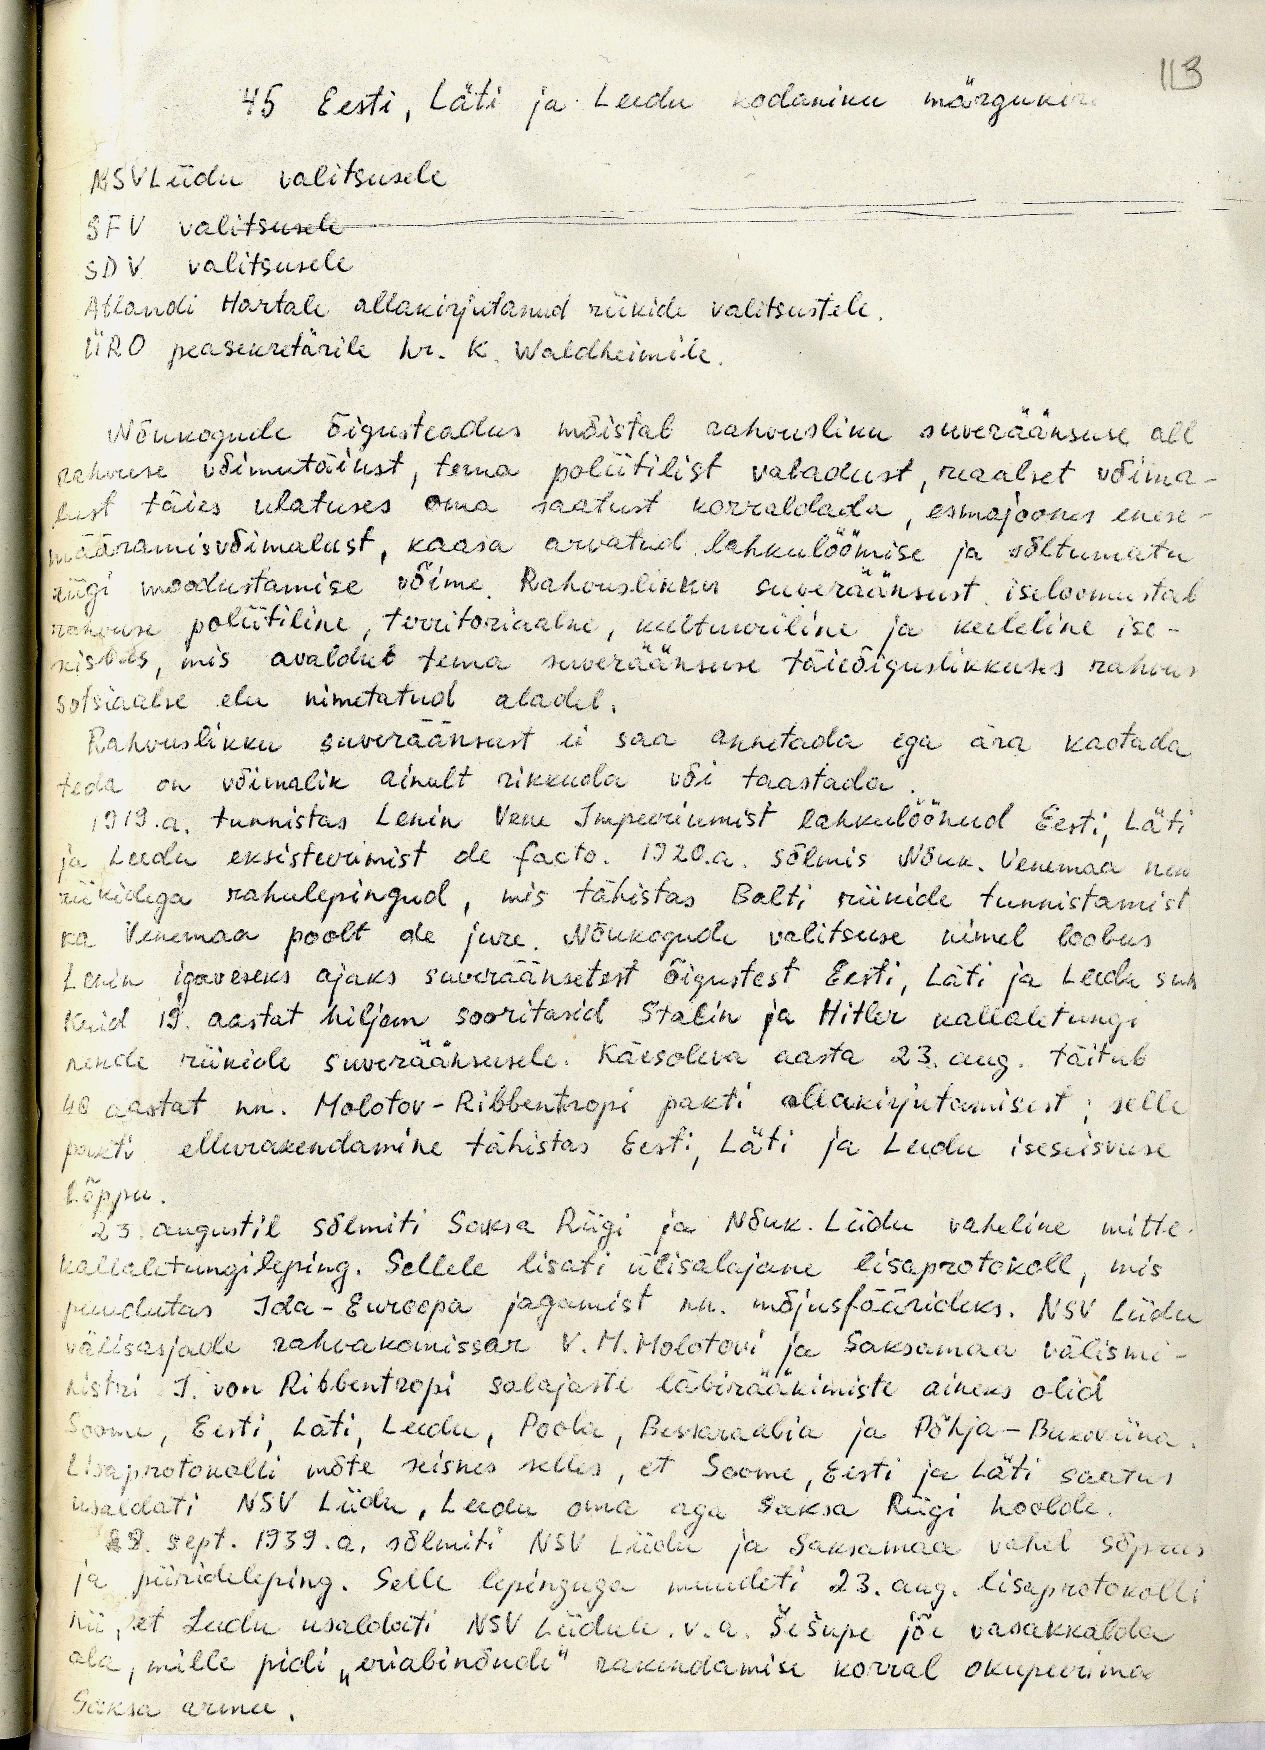 113
45 Eesti, Läti ja Leedu kodaniku märgukiri
NSVLiidu valitsusele
SFV valitsusele
SDV valitsusele
Atlandi Hartale allakirjutanud riikide valitsustele.
ÜRO peasekretärile hr. K. Waldheimile.
Nõukogude õigusteadus mõistab rahvusliku suveräänsuse all
rahvuse võimutäiust, tema poliitilist vabadust, reaalset võima-
lust täies ulatuses oma saatust korraldada, esmajoones enese-
määramisvõimalust, kaasa arvatud lahkulöömise ja sõltumatu
riigi moodustamise võime. Rahvuslikku suveräänsust iseloomustab
rahvuse poliitiline, territoriaalne, kultuuriline ja keeleline ise-
seisvus, mis avaldub tema suveräänsuse täieõiguslikkuses rahvus
sotsiaalse elu nimetatud aladel.
Rahvuslikku suveräänsust ei saa annetada ega ära kaotada
teda on võimalik ainult rikkuda või taastada.
1919.a. tunnistas Lenin Vene Impeeriumist lahkulöönud Eesti, Läti
ja Leedu eksisteerimist de facto. 1920.a. sõlmis Nõuk. Venemaa nen
riikidega rahulepingud, mis tähistas Balti riikide tunnistamist
ka Venemaa poolt de jure. Nõukogude valitsuse nimel loobus
Lenin igaveseks ajaks suveräänsetest õigustest Eesti, Läti ja Leedu suh
Kuid 19. aastat hiljem sooritasid Stalin ja Hitler kallaletungi
nende riikide suveräänsusele. Käesoleva aasta 23. aug. täitub
40 aastat nn. Molotov-Ribbentropi pakti allakirjutamisest; selle
pakti ellurakendamine tähistas Eesti, Läti ja Leedu iseseisvuse
lõppu.
23. augustil sõlmiti Saksa Riigi ja Nõuk. Liidu vaheline mitte-
kallaletungileping. Sellele lisati ülisalajane lisaprotokoll, mis
puudutas Ida-Euroopa jagamist nn. mõjusfäärideks. NSV Liidu
välisasjade rahvakomissar V. M. Molotovi ja Saksamaa välismi-
nistri J. von Ribbentropi salajaste läbirääkimiste aineks olid
Soome, Eesti, Läti, Leedu, Poola, Bessaraabia ja Põhja-Bukoviina.
Lisaprotokolli mõte seisnes selles, et Soome, Eesti ja Läti saatus
usaldati NSV Liidu, Leedu oma aga Saksa Riigi hoolde.
28. sept. 1939.a. sõlmiti NSV Liidu ja Saksamaa vahel sõprus
ja piirideleping. Selle lepinguga muudeti 23. aug. lisaprotokolli
nii, et Leedu usaldati NSV Liidule. v.a. Šešupe jõe vasakkalda
ala, mille pidi „eriabinõude" rakendamise korral okupeerima
Saksa armee.